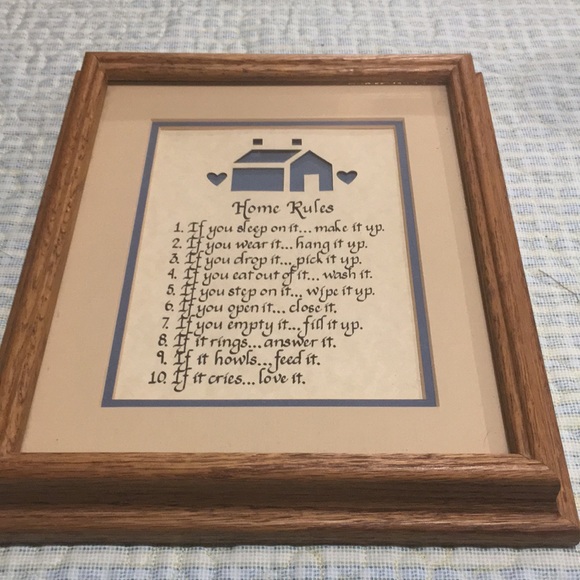 Home Rules
1. If you sleep on it... make it up.
2. If you wear it... hang it up.
3. If you drop it... pick it up.
4. If you eat out of it... wash it.
5. If you step on it... wipe it up.
6. If you open it... close it.
7. If you empty it... fill it up.
8. If it rings... answer it.
9. If it howls... feed it.
10. If it cries... love it.